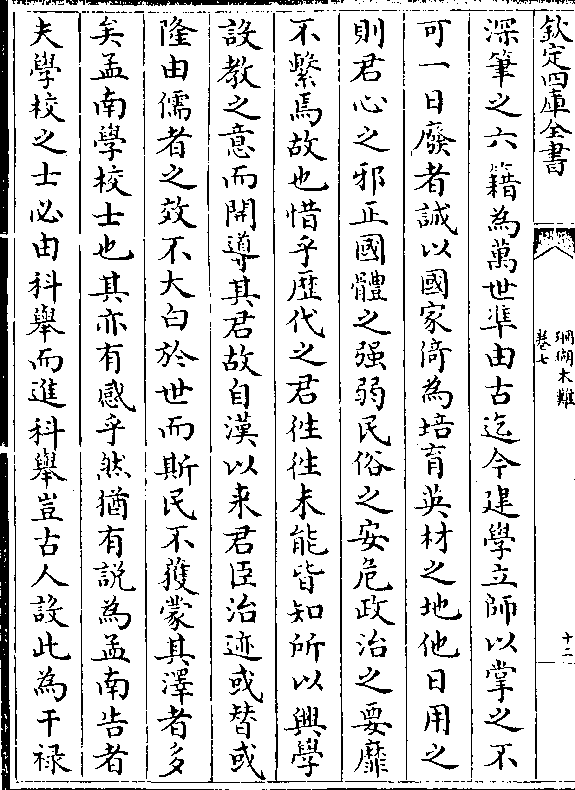 欽定四庫全書
珊瑚木難
卷七
十二
深筆之六籍為萬世準由古迄今建學立師以掌之不
可一日廢者誠以國家倚為培育英材之地他日用之
則君心之邪正國體之强弱民俗之安危政治之要靡
不繫焉故也惜乎歴代之君徃徃未能皆知所以興學
設教之意而開導其君故自漢以来君臣治迹或替或
隆由儒者之效不大白於世而斯民不獲蒙其澤者多
矣孟南學校士也其亦有感乎然猶有説為孟南告者
夫學校之士必由科舉而進科舉豈古人設此為干禄